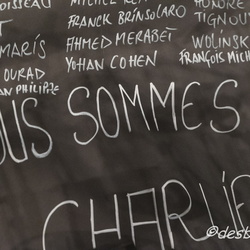 OISSEAU MICHEL RE HONORÉ
T FRANCK BRINSOLARO TIGNOU
MARIS AHMED MERABET WOLINSK
OURAD YOHAN COHEN FRANÇOIS MICH
AN PHILIPPE
OUS SOMMES
CHARLIE
©dest